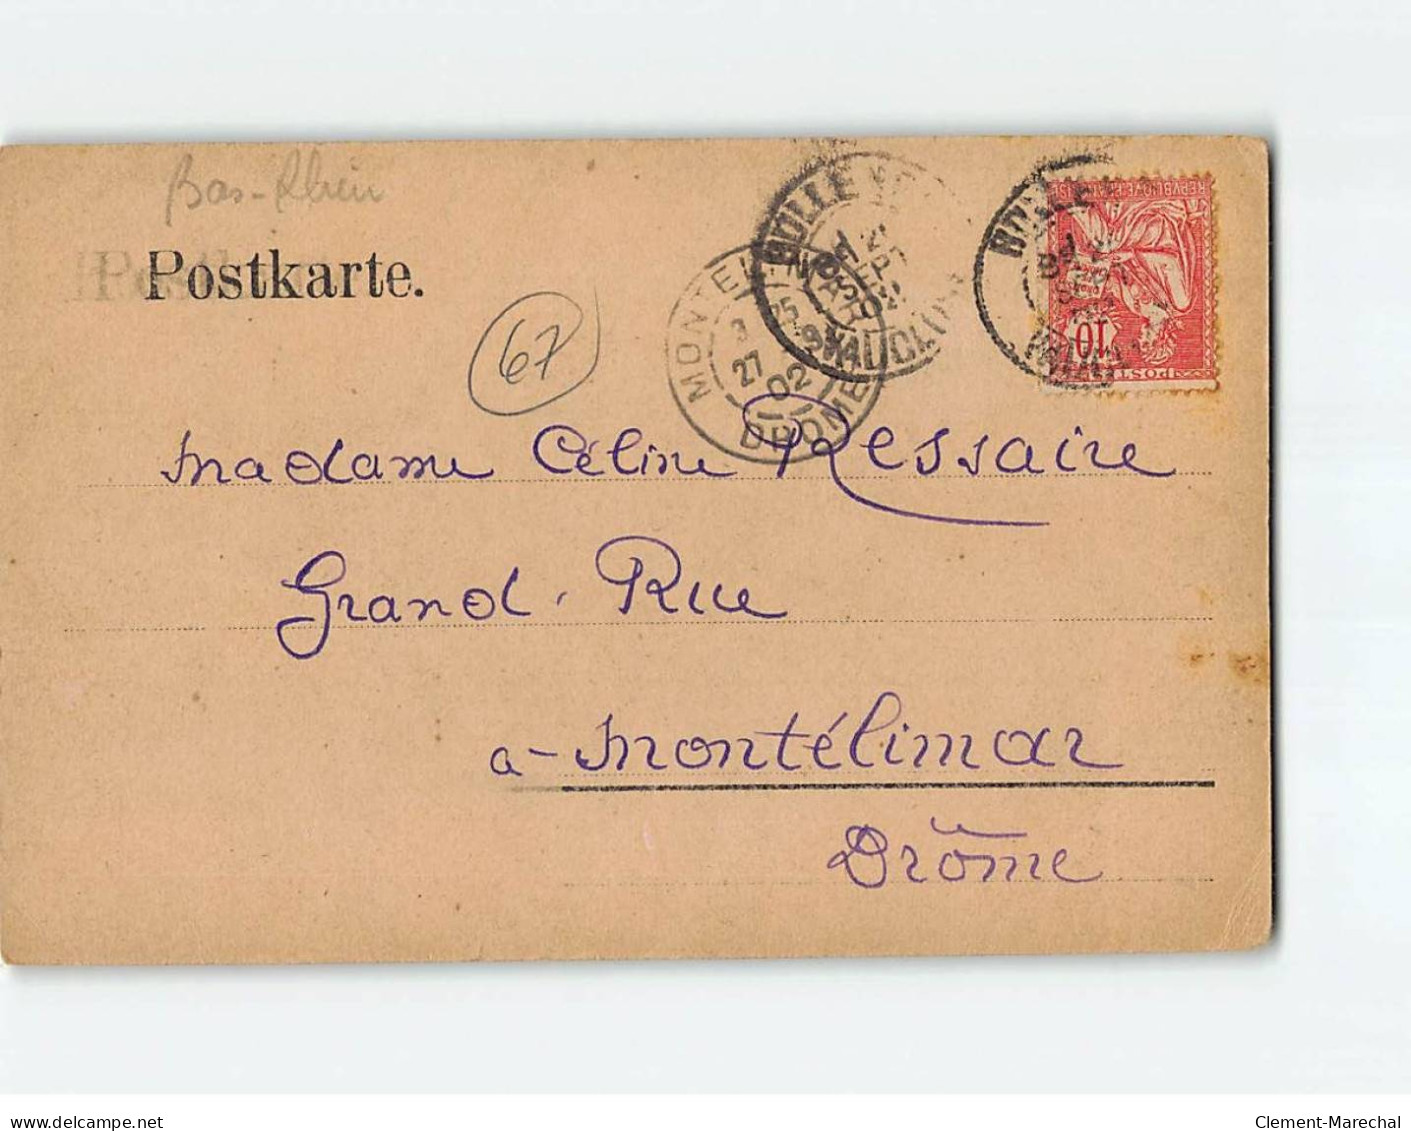 Bas-Rhin
Postkarte.
67
MONTELIMAR
3 25
27 02
DROME
BOLLENE
SEPT
VAUCLUSE
BOLLENE
REPUBLIQUE FRANÇAISE
10
POSTES
Madame Céline Ressaire
Grand. Rue
a- Montélimar
Drôme
delcampe.net
Clement-Marechal